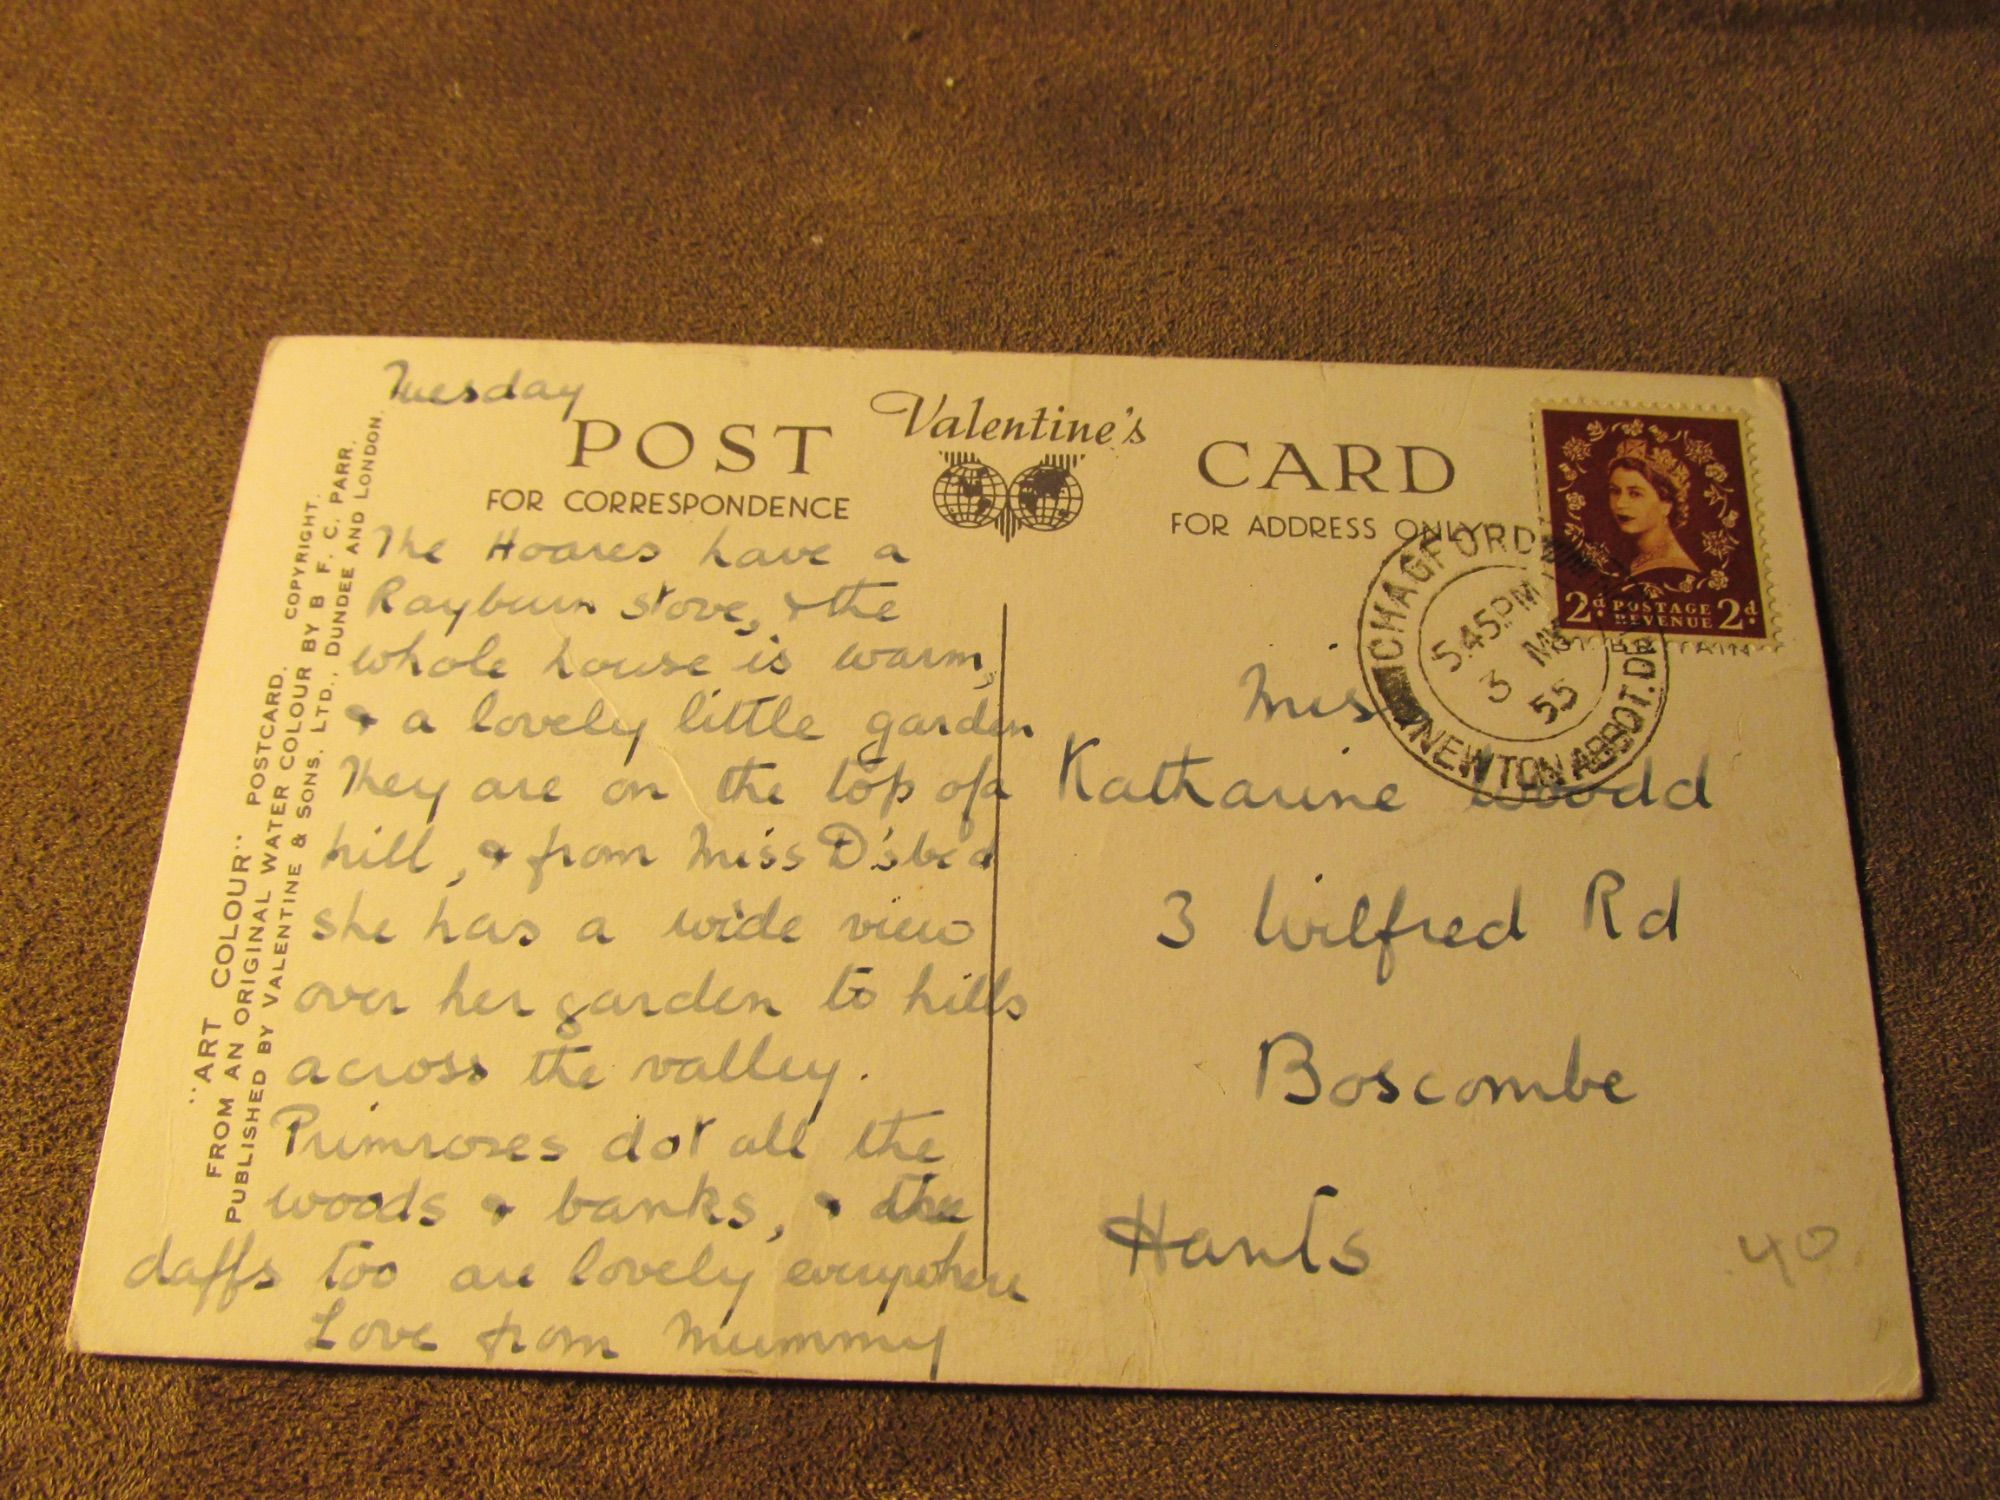 Tuesday
Valentine's
POST CARD
FOR CORRESPONDENCE
FOR ADDRESS ONLY
The Hoares have a
Rayburn stove, & the
whole house is warm,
& a lovely little garden
They are on the top of a
hill, & from Miss D's bed
she has a wide view
over her garden to hills
across the valley.
Primroses dot all the
woods & banks, & the
daffs too are lovely everywhere
Love from Mummy
"ART COLOUR" POSTCARD. COPYRIGHT.
FROM AN ORIGINAL WATER COLOUR BY B. F. C. PARR.
PUBLISHED BY VALENTINE & SONS. LTD., DUNDEE AND LONDON.
2d POSTAGE 2d
REVENUE
CHAGFORD
5.45 PM
3
55
NEWTON ABBOT. D
Miss
Katharine Woodd
3 Wilfred Rd
Boscombe
Hants
40